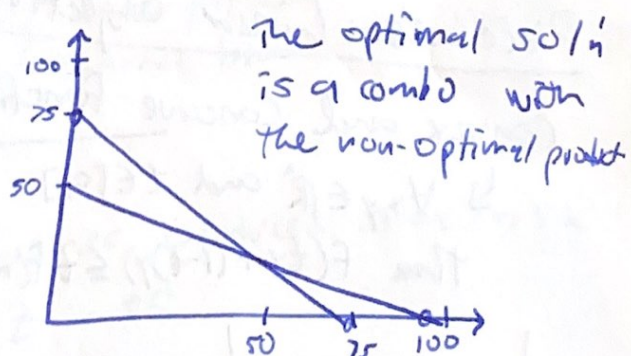 The optimal sol'n
is a combo with
the non-optimal product
100
75
50
50
75
100